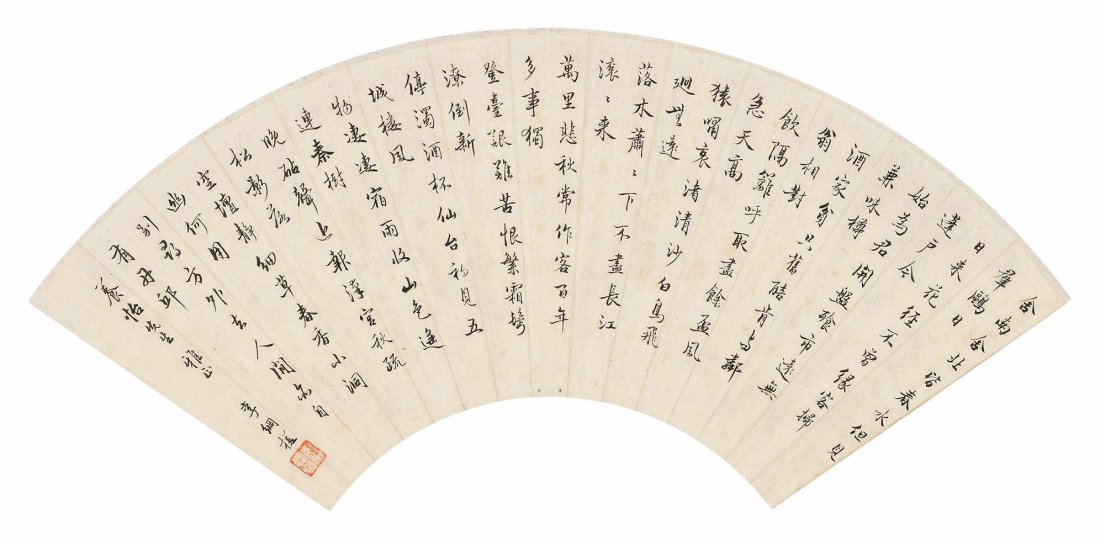 舍南舍北皆春水但見
羣鷗日
日來花徑不曾緣客掃
蓬戶今
始為君開盤飧市遠無
兼味樽
酒家貧只舊醅肯與鄰
翁相對
飲隔籬呼取盡餘盃風
急天高
猿嘯哀渚清沙白鳥飛
廻無邊
落木蕭〻下不盡長江
滾〻來
萬里悲秋常作客百年
多事獨
登臺艱難苦恨繁霜鬢
潦倒新
停濁酒杯仙台初見五
城樓風
物淒淒宿雨收山色遙
連秦樹
晚砧聲近報漢宮秋疏
松影落
空壇靜細草春香小洞
幽何用
別尋方外去人間亦自
有丹邱
養怡先生雅正
李綱